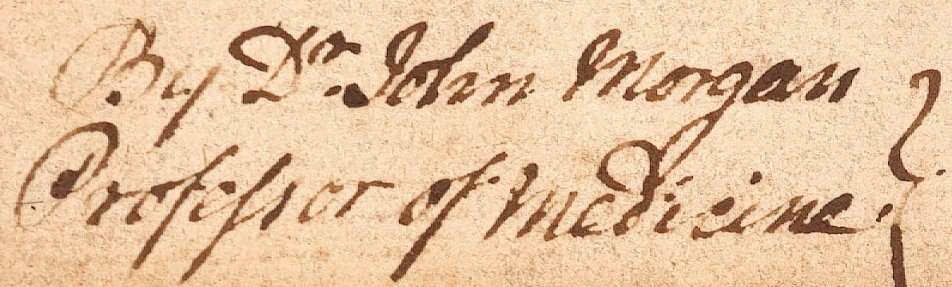 By Dr. John Morgan
Professor of Medicine.